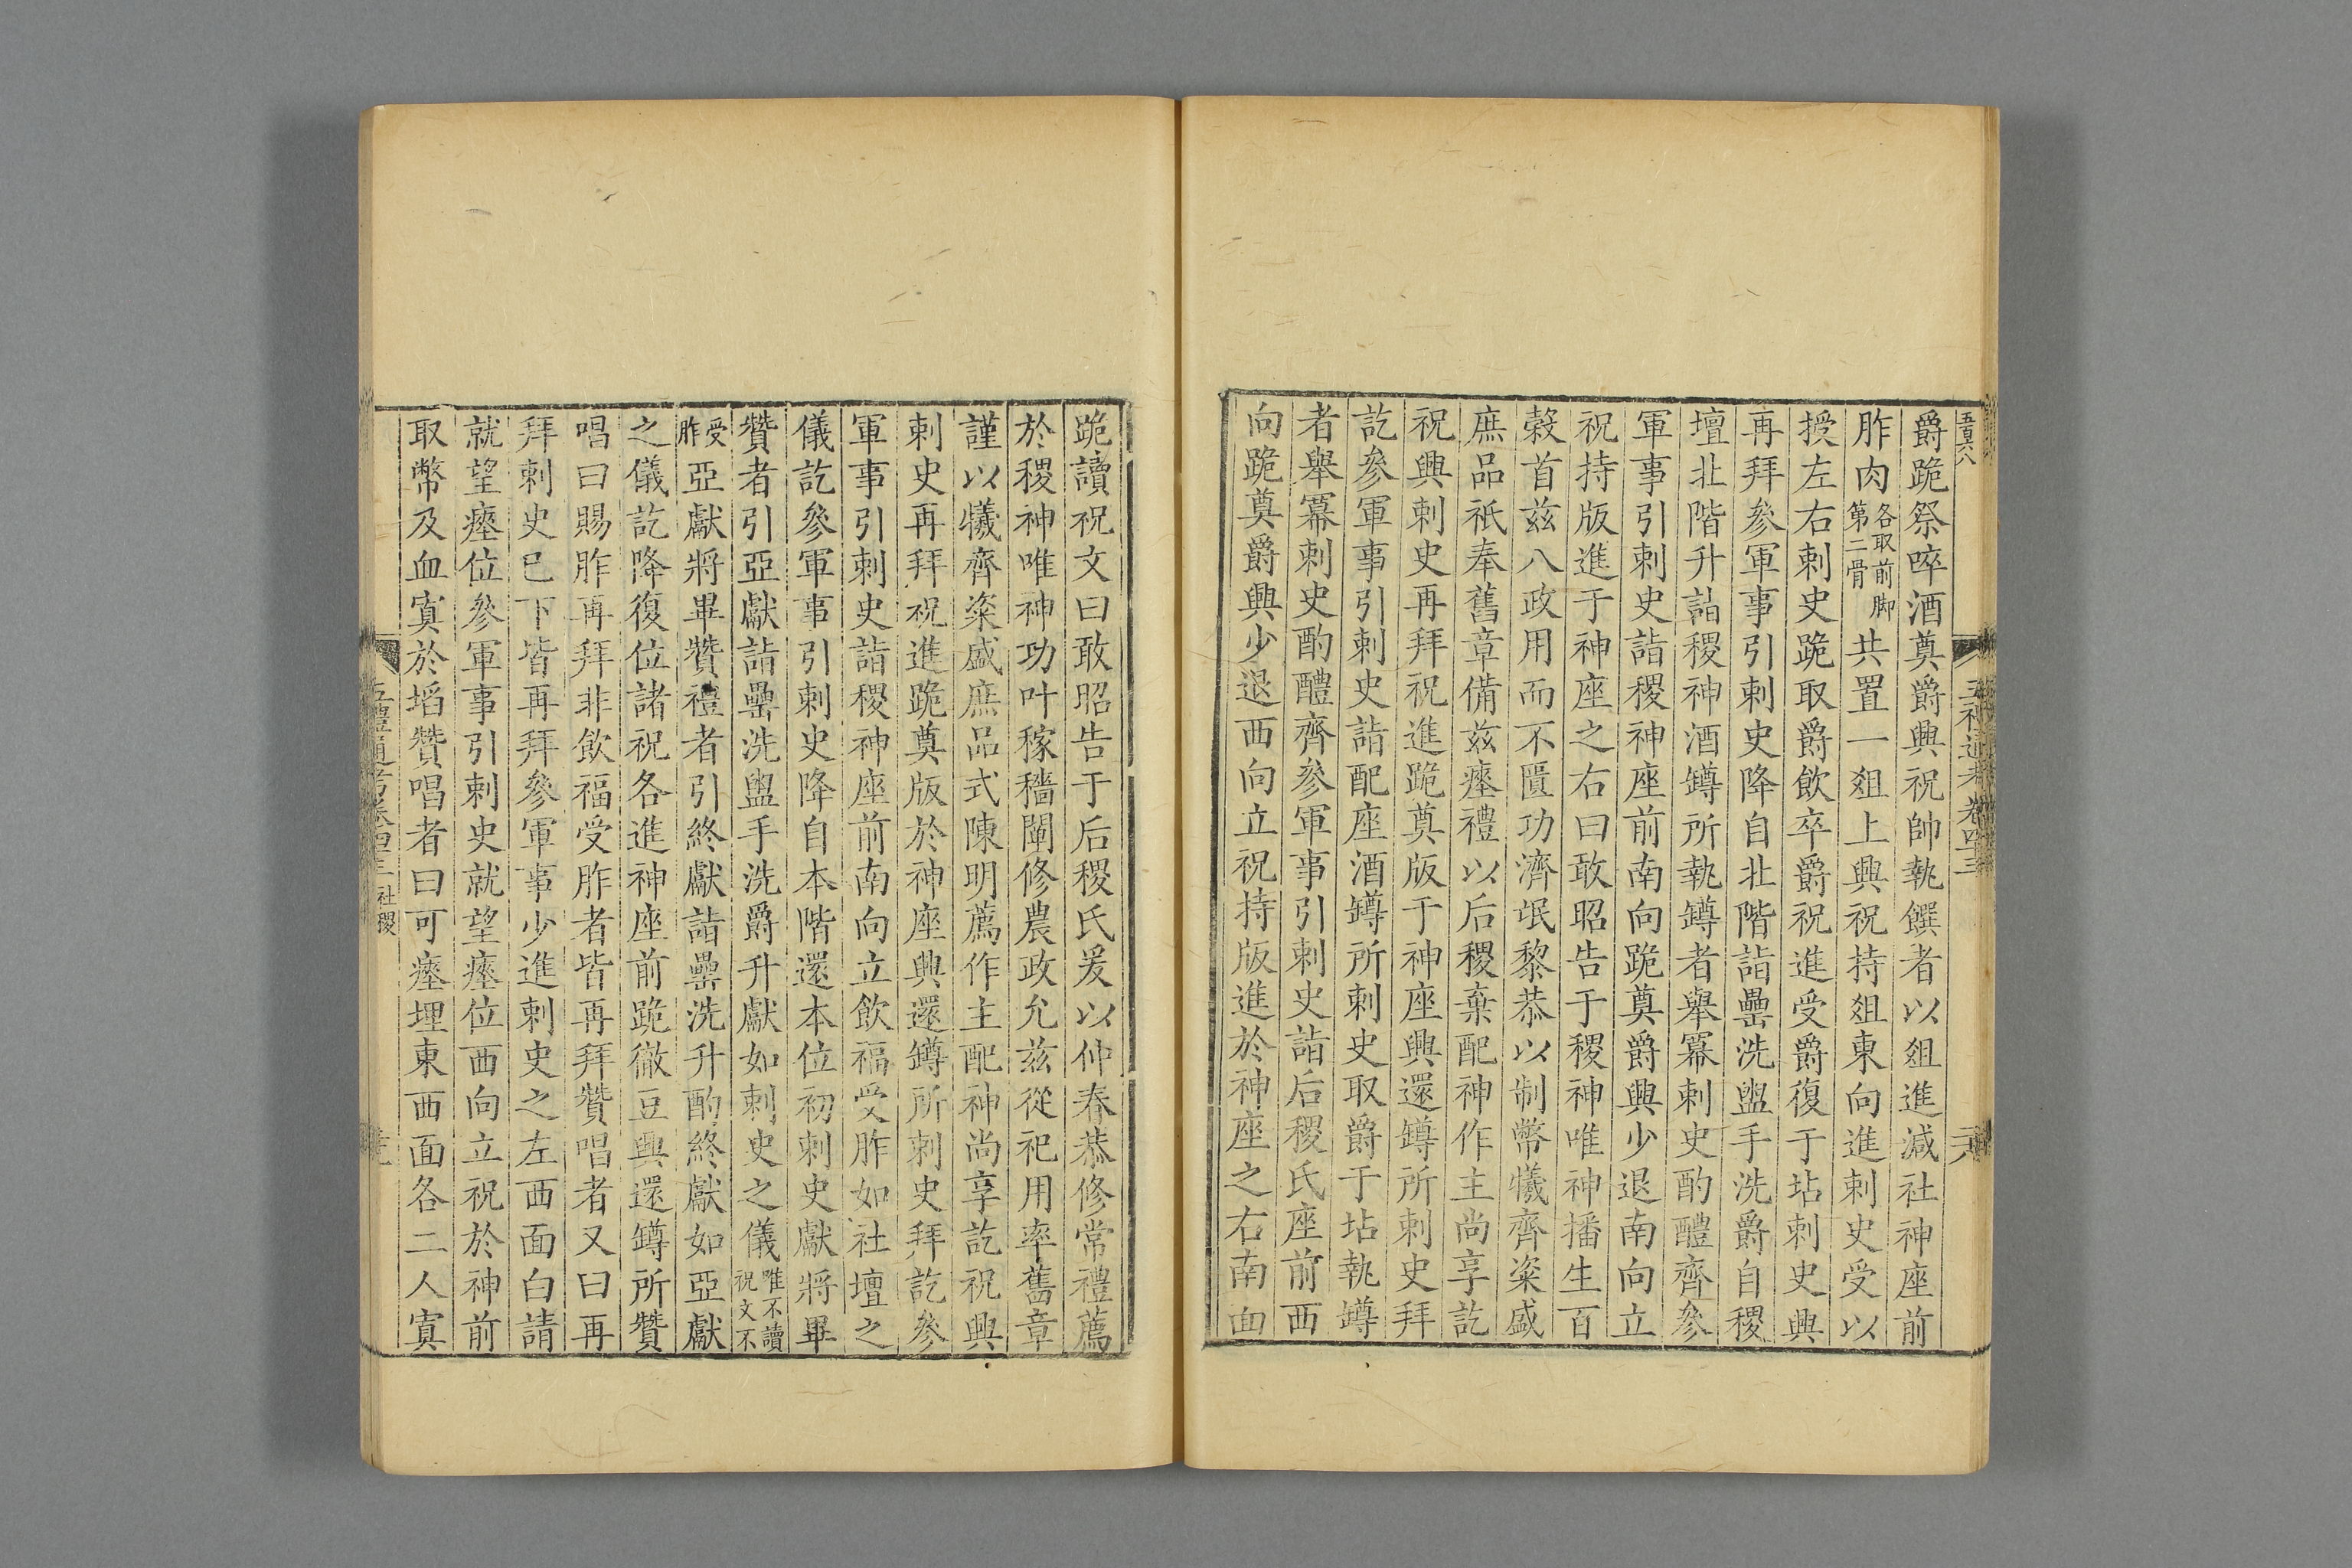 爵跪祭啐酒奠爵興祝帥執饌者以俎進減社神座前
胙肉各取前脚第二骨共置一俎上興祝持俎東向進刺史受以
授左右刺史跪取爵飲卒爵祝進受爵復于坫刺史興
再拜參軍事引刺史降自北階詣罍洗盥手洗爵自稷
壇北階升詣稷神酒罇所執罇者舉冪刺史酌醴齊參
軍事引刺史詣稷神座前南向跪奠爵興少退南向立
祝持版進于神座之右曰敢昭告于稷神唯神播生百
穀首茲八政用而不匱功濟氓黎恭以制幣犧齊粢盛
庶品祇奉舊章備茲瘞禮以后稷棄配神作主尚享訖
祝興刺史再拜祝進跪奠版于神座興還罇所刺史拜
訖參軍事引刺史詣配座酒罇所刺史取爵于坫執罇
者舉冪刺史酌醴齊參軍事引刺史詣后稷氏座前西
向跪奠爵興少退西向立祝持版進於神座之右南面
跪讀祝文曰敢昭告于后稷氏爰以仲春恭修常禮薦
於稷神唯神功叶稼穡闡修農政允茲從祀用率舊章
謹以犧齊粢盛庶品式陳明薦作主配神尚享訖祝興
刺史再拜祝進跪奠版於神座興還罇所刺史拜訖參
軍事引刺史詣稷神座前南向立飲福受胙如社壇之
儀訖參軍事引刺史降自本階還本位初刺史獻將畢
贊者引亞獻詣罍洗盥手洗爵升獻如刺史之儀唯不讀祝文不
受胙亞獻將畢贊禮者引終獻詣罍洗升酌終獻如亞獻
之儀訖降復位諸祝各進神座前跪徹豆興還罇所贊
唱曰賜胙再拜非飲福受胙者皆再拜贊唱者又曰再
拜刺史已下皆再拜參軍事少進刺史之左西面白請
就望瘞位參軍事引刺史就望瘞位西向立祝於神前
取幣及血寘於埳贊唱者曰可瘞埋東西面各二人寘
五禮通考卷四十三 社稷